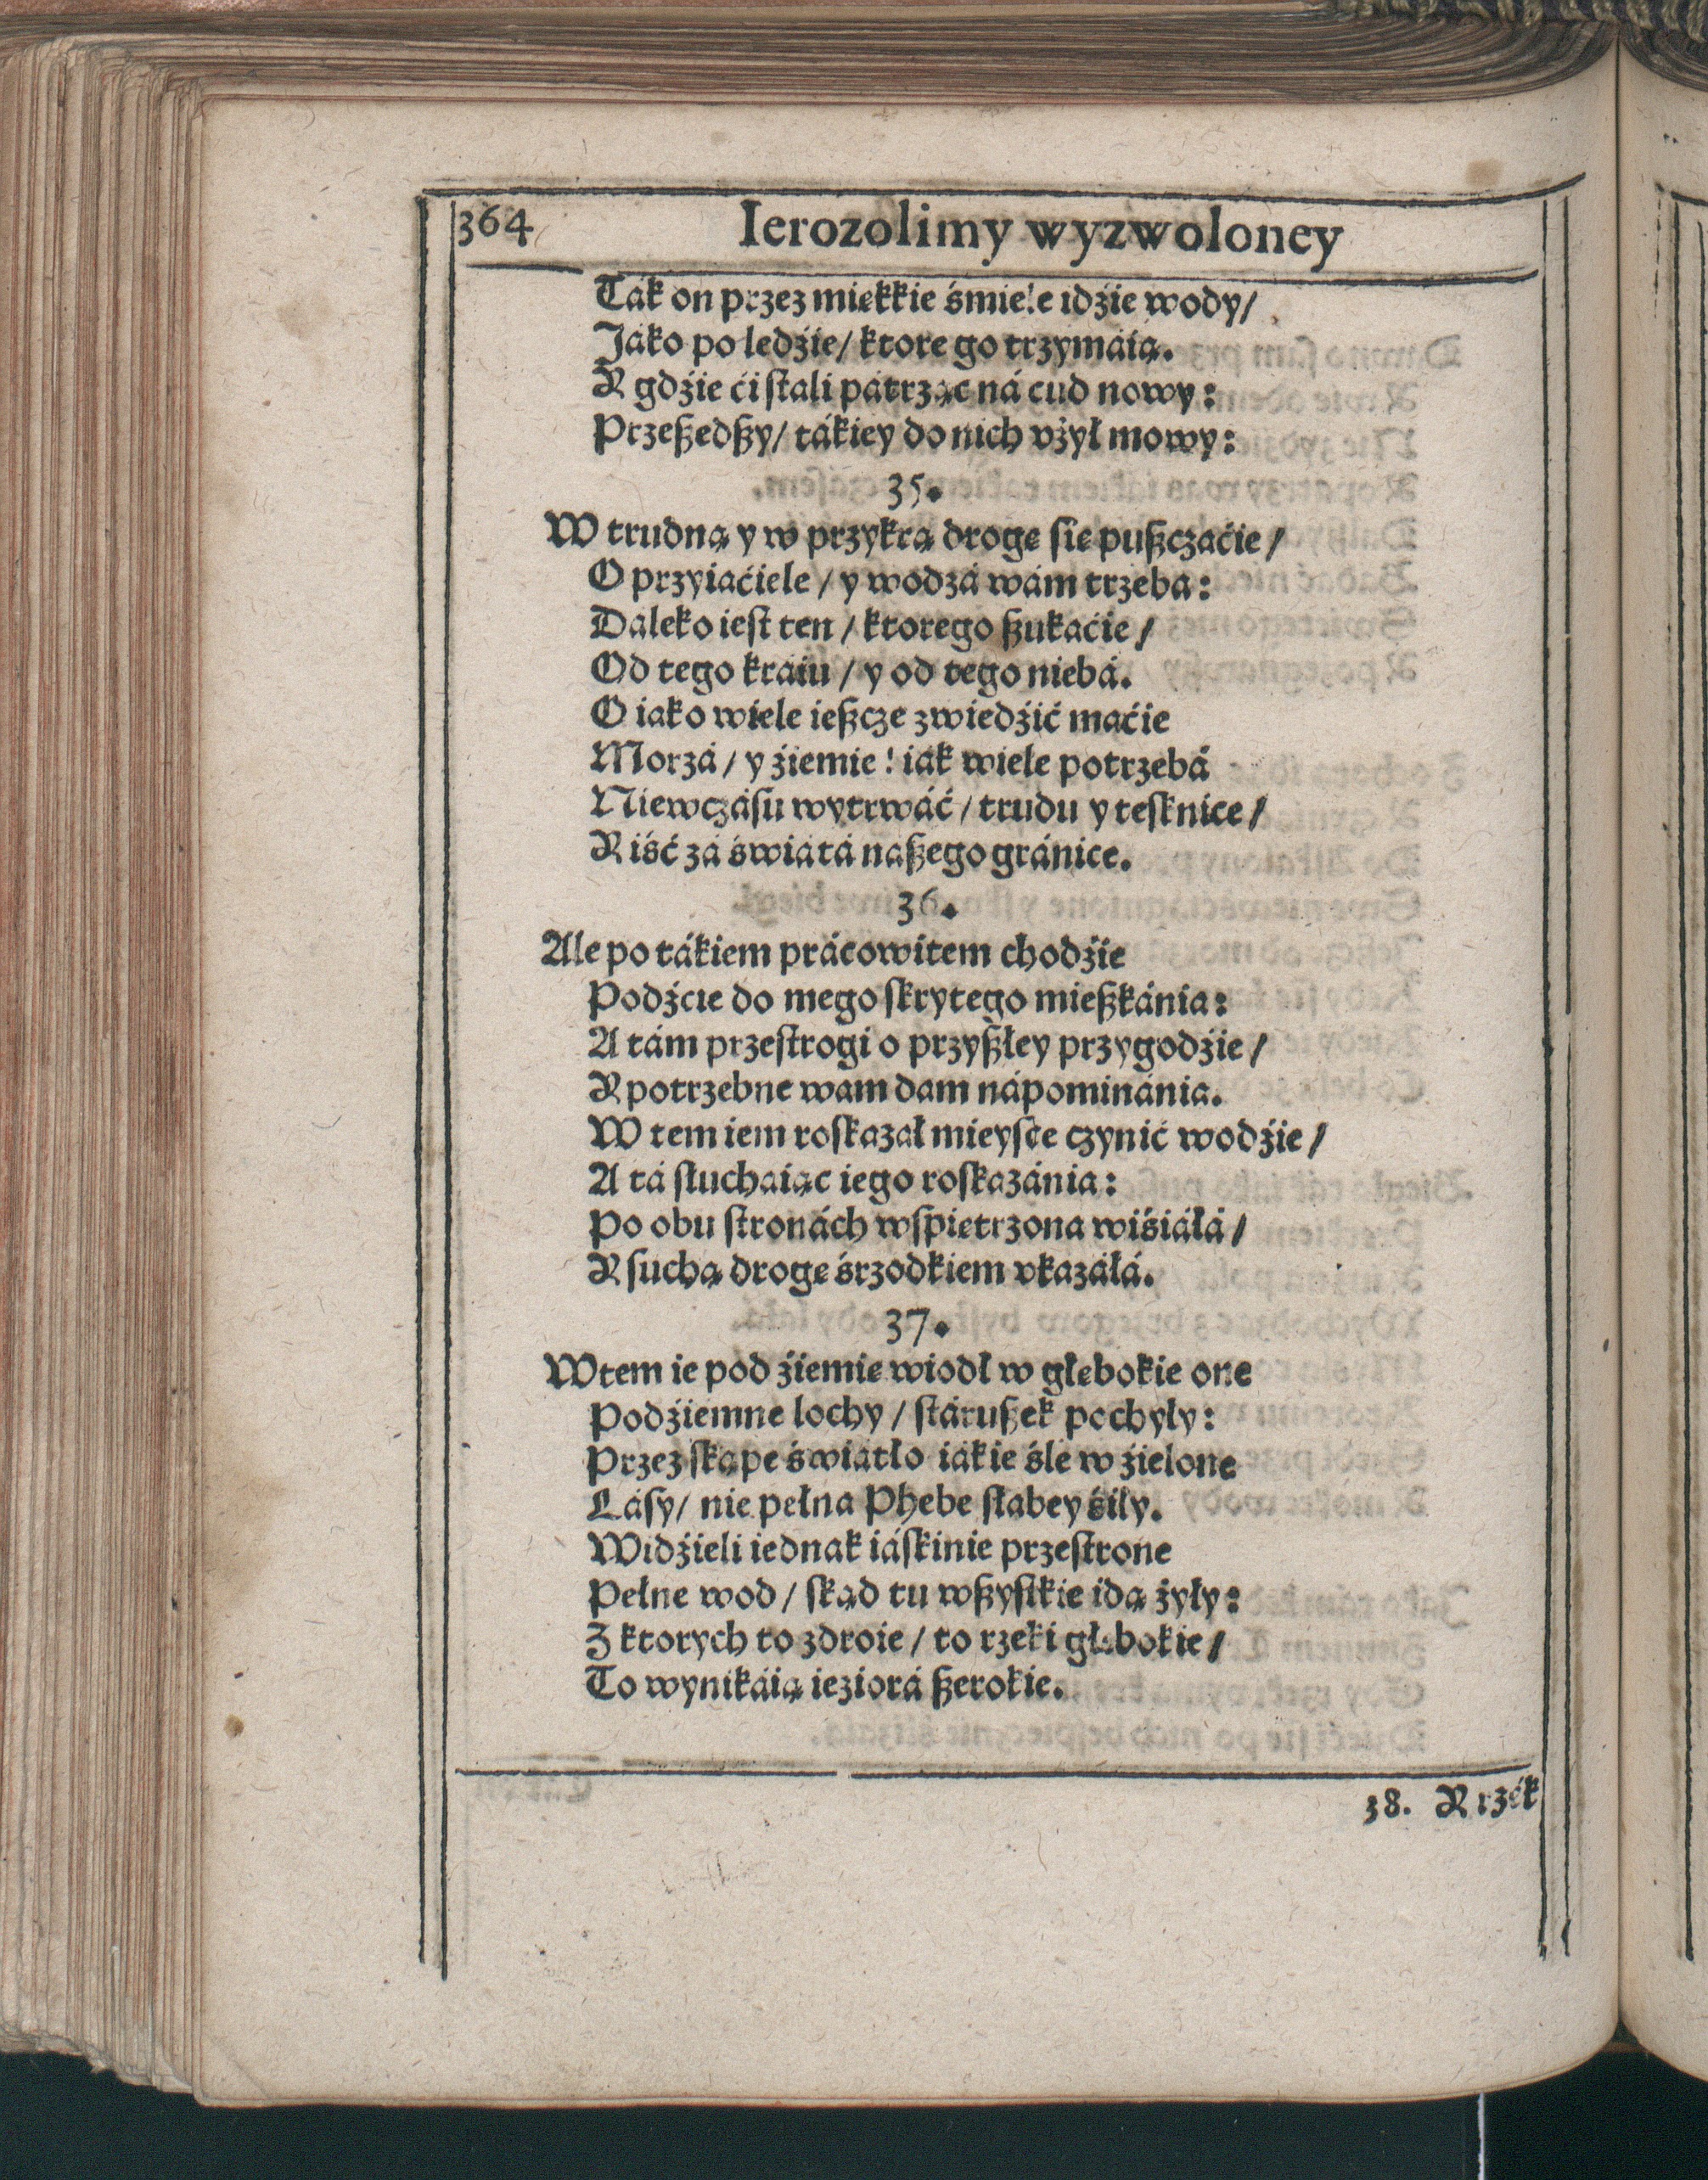 364
Ierozolimy wyzwoloney
Ták on przez miękkie śmiele idźie wody/
Jáko po ledźie/ ktore go trzymáią.
Y gdźie ći stali pátrząc ná cud nowy:
Przeszedszy/ tákiey do nich vżył mowy:
35.
W trudną y w przykrą drogę się puszczaćie/
O przyiaćiele/ y wodzá wám trzebá:
Dáleko iest ten/ ktorego szukaćie/
Od tego kráiu/ y od tego niebá.
O iáko wiele ieszcze zwiedźić maćie
Morzá/ y źiemie! iák wiele potrzebá
Niewczásu wytrwáć/ trudu y tesknice/
Y iść zá świátá nászego gránice.
36.
Ale po tákiem prácowitem chodźie
Podźcie do mego skrytego mieszkánia:
A tám przestrogi o przyszłey przygodźie/
Y potrzebne wam dam nápominánia.
W tem iem roskazał mieysce czynić wodźie/
A tá słuchaiąc iego roskazánia:
Po obu stronách wspiętrzona wiśiáłá/
Y suchą drogę śrzodkiem vkazáłá.
37.
Wtem ie pod źiemię wiodł w głębokie one
Podźiemne lochy/ stáruszek pochyły:
Przez skąpe świátło iákie śle w źielone
Lásy/ nie pełna Phebe słabey śiły.
Widźieli iednak iáskinie przestrone
Pełne wod/ skąd tu wszystkie idą żyły:
Z ktorych to zdroie/ to rzeki głębokie/
To wynikáią ieziorá szerokie.
38. Y rzék